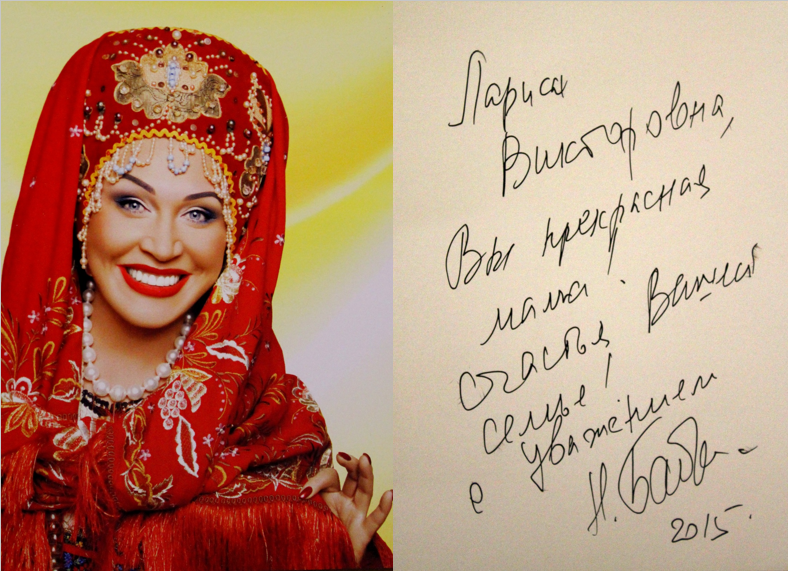 Лариса
Викторовна,
Вы прекрасная
мама!
счастья Вашей
семье!
с уважением
Н. Баб
2015.